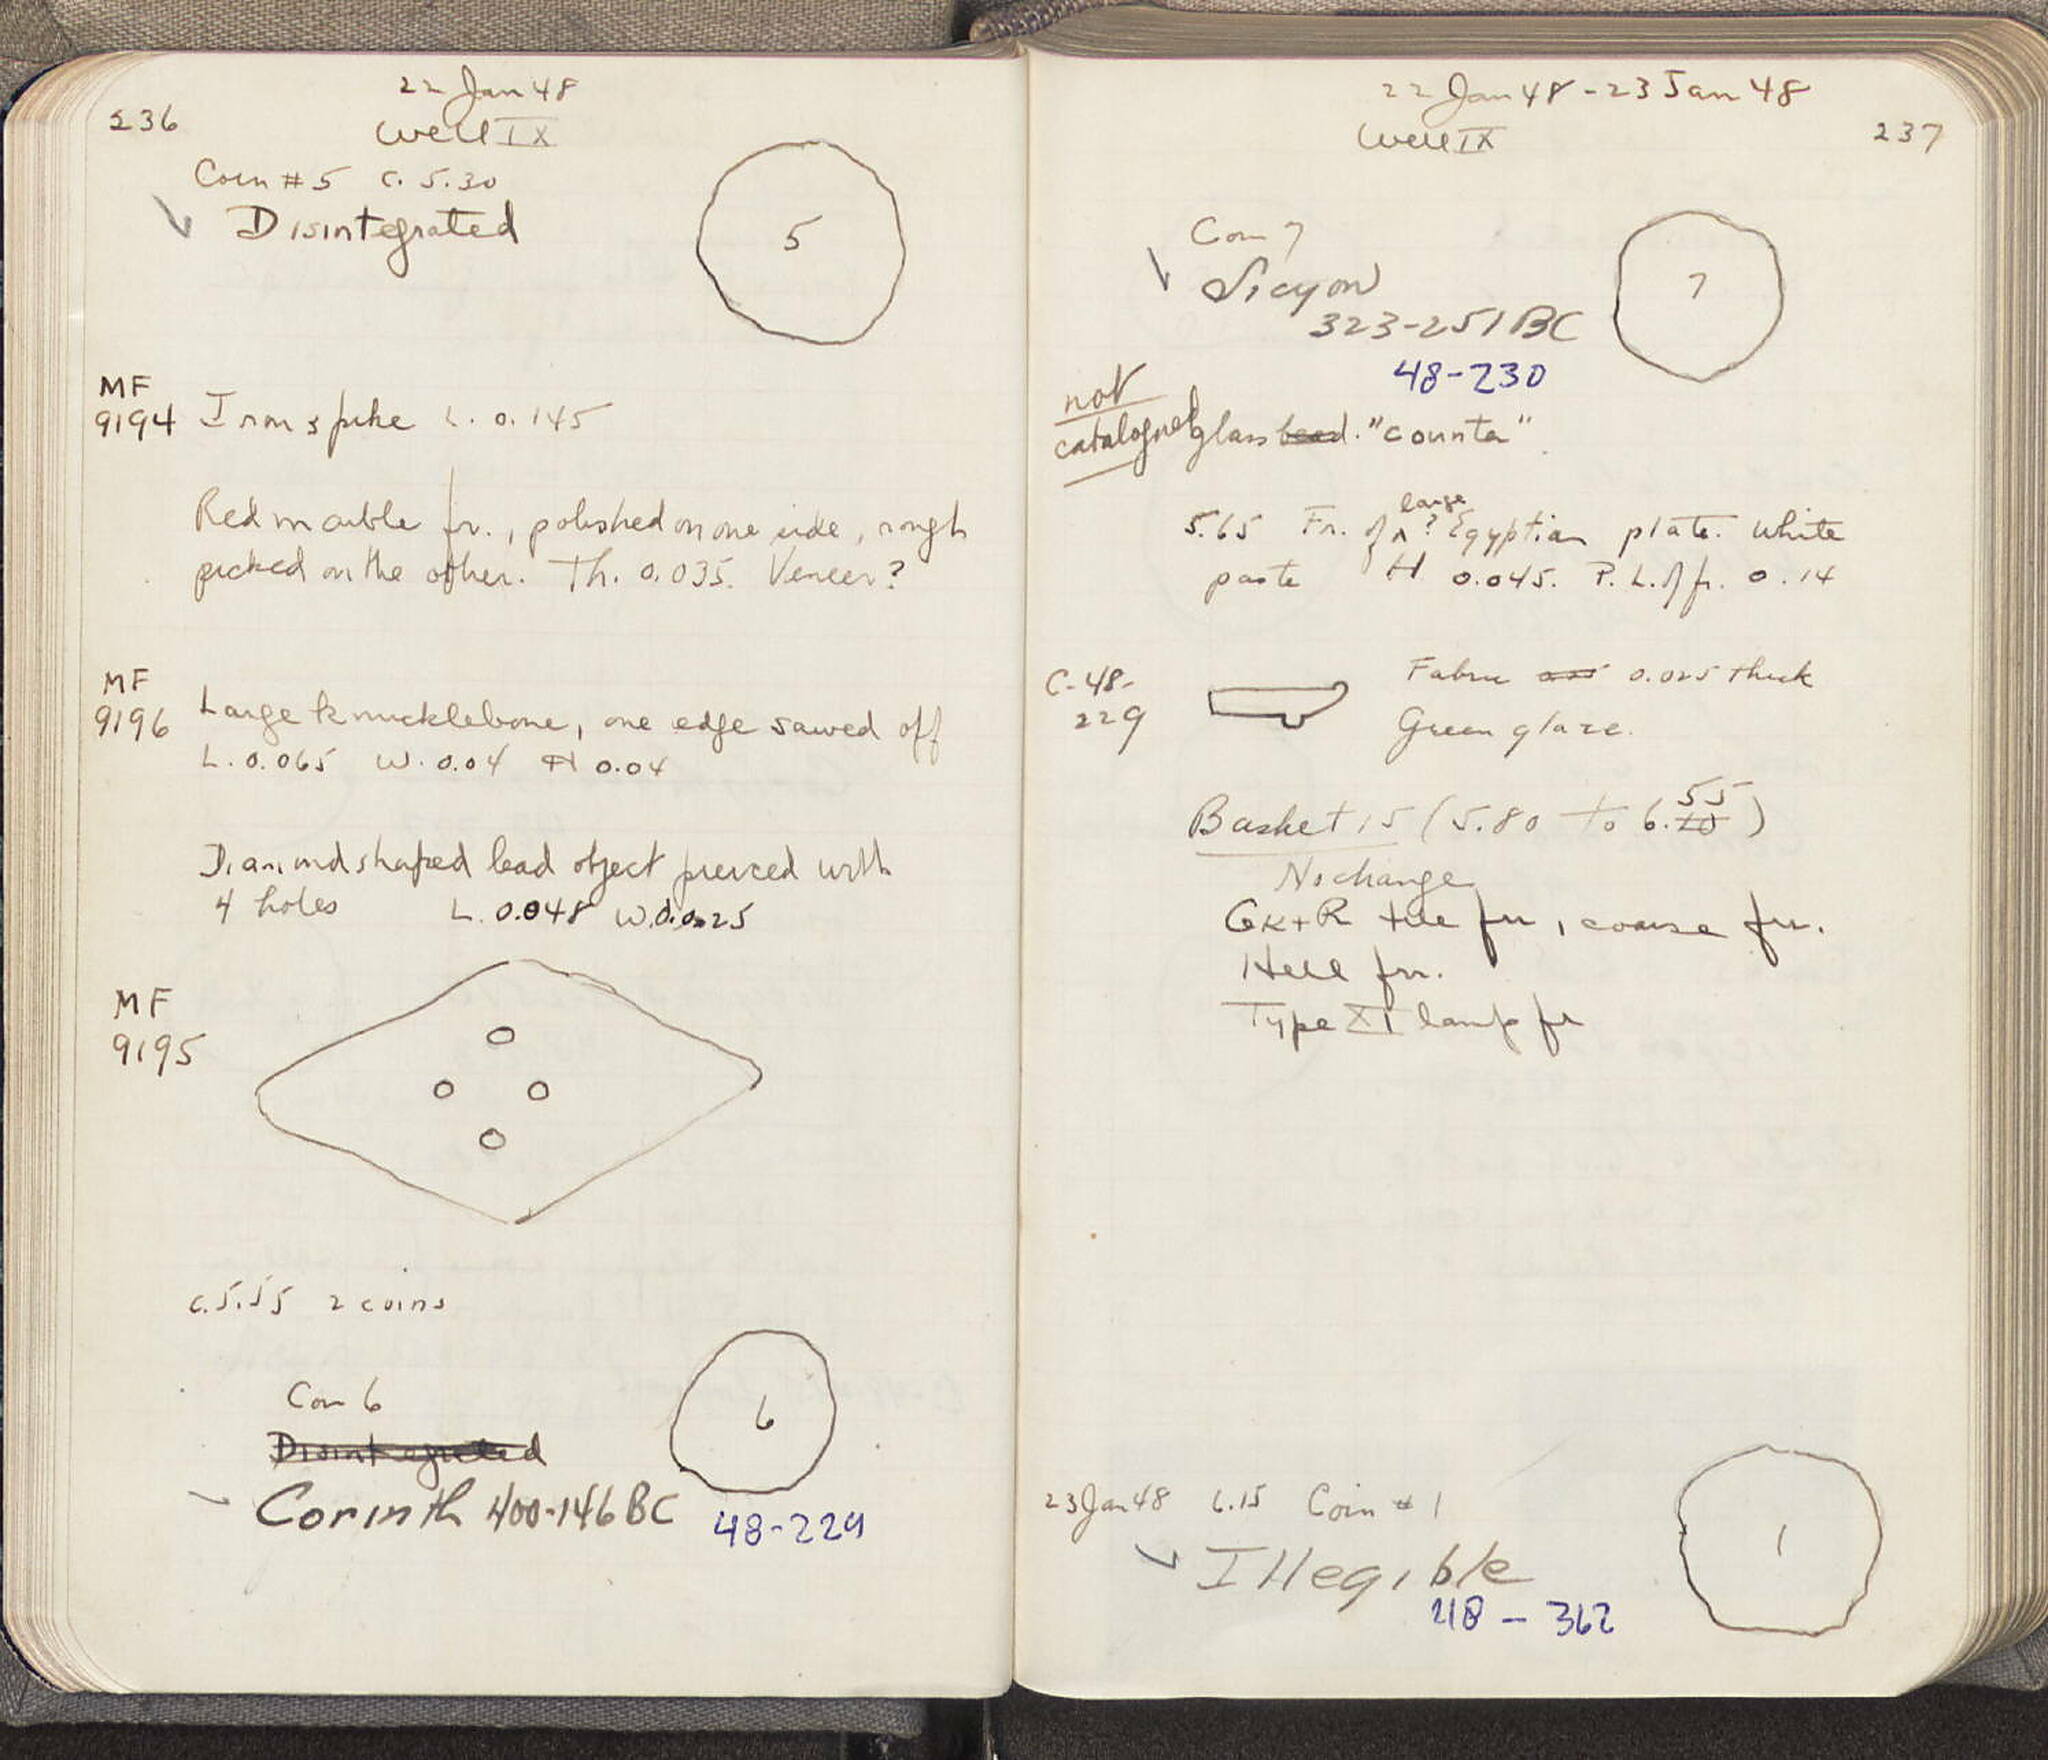 236
22 Jan 48
Well IX
Coin #5 c. 5.30
Disintegrated
5
MF
9194 Iron spike L. 0.145
Red marble fr., polished on one side, rough
picked on the other. Th. 0.035. Veneer?
MF
9196 Large knucklebone, one edge sawed off
L. 0.065 W. 0.04 H 0.04
Diamond shaped lead object pierced with
4 holes L. 0.048 W. 0.025
MF
9195
c. 5.55 2 coins
Coin 6
Disintegrated
6
Corinth 400-146 BC
48-229
22 Jan 48 - 23 Jan 48
Well IX
237
Coin 7
Sicyon
323-251 BC
7
48-230
not
catalogued glass bead. "counter"
large
5.65 Fr. of ^ ? Egyptian plate. White
paste H 0.045. P. L. of fr. 0.14
C-48-
229
Fabric 0.025 thick
Green glaze.
Basket 15 (5.80 to 6.10 55)
No change
Gk + R tile frr, coarse frr.
Hell frr.
Type XI lamp fr
23 Jan 48 6.15 Coin #1
Illegible
48-362
1